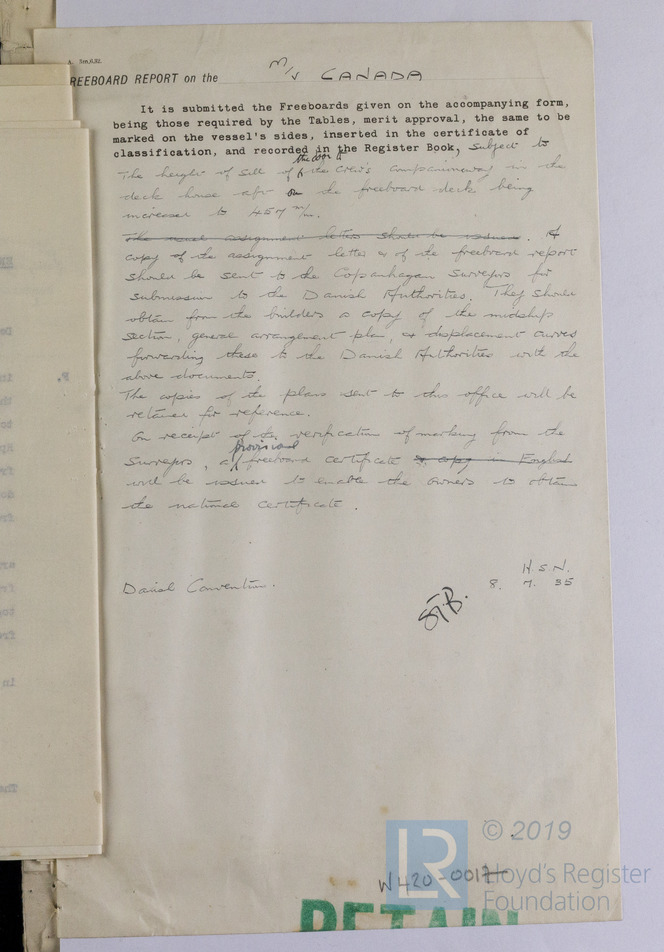 A. 5m,6,32.
FREEBOARD REPORT on the M/V CANADA
It is submitted the Freeboards given on the accompanying form,
being those required by the Tables, merit approval, the same to be
marked on the vessel's sides, inserted in the certificate of
classification, and recorded in the Register Book, subject to
the height of sill of the door to the Crew's Companionway in the
deck house aft on the freeboard deck being
increased to 457 m/m.
The usual assignment letters should be issued. A
copy of the assignment letter & of the freeboard report
should be sent to the Copenhagen Surveyors for
submission to the Danish Authorities. They should
obtain from the builders a copy of the midship
section, general arrangement plan, & displacement curves
forwarding these to the Danish Authorities with the
above documents.
The copies of the plans sent to this office will be
retained for reference.
On receipt of the verification of marking from the
Surveyors, a provisional freeboard certificate & copy in English
will be issued to enable the owners to obtain
the national certificate.
H.S.N.
Danish Convention.
8. 7. 35
ST.B.
© 2019
LR
Lloyd's Register
Foundation
W420-0017
RETAIN